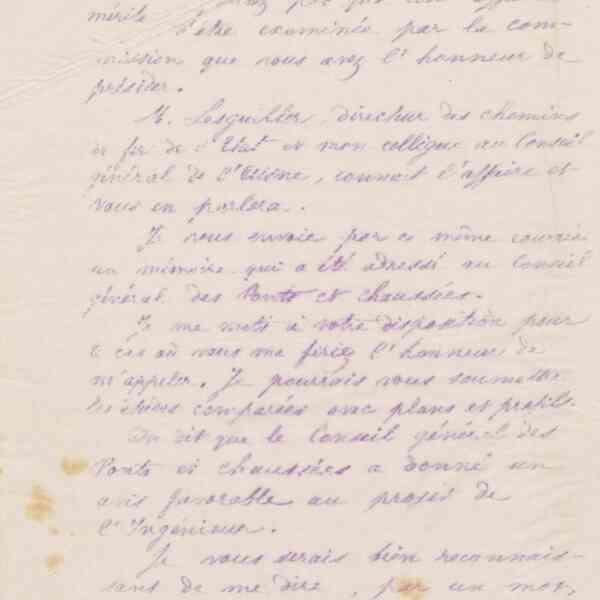 mérite d'être examinée par la com-
mission que vous avez l'honneur de
présider.
M. Lesguiller, directeur des chemins
de fer de l'Etat et mon collègue au Conseil
général de l'Aisne, connait l'affaire et
vous en parlera.
Je vous envoie par ce même courrier
un mémoire qui a été adressé au Conseil
général des Ponts et chaussées.
Je me mets à votre disposition pour
le cas où vous me feriez l'honneur de
m'appeler. Je pourrais vous soumettre
les études comparées avec plans et profils.
On dit que le Conseil général des
Ponts et chaussées a donné un
avis favorable au projet de
l'Ingénieur.
Je vous serais bien reconnais-
sant de me dire, par un mot,